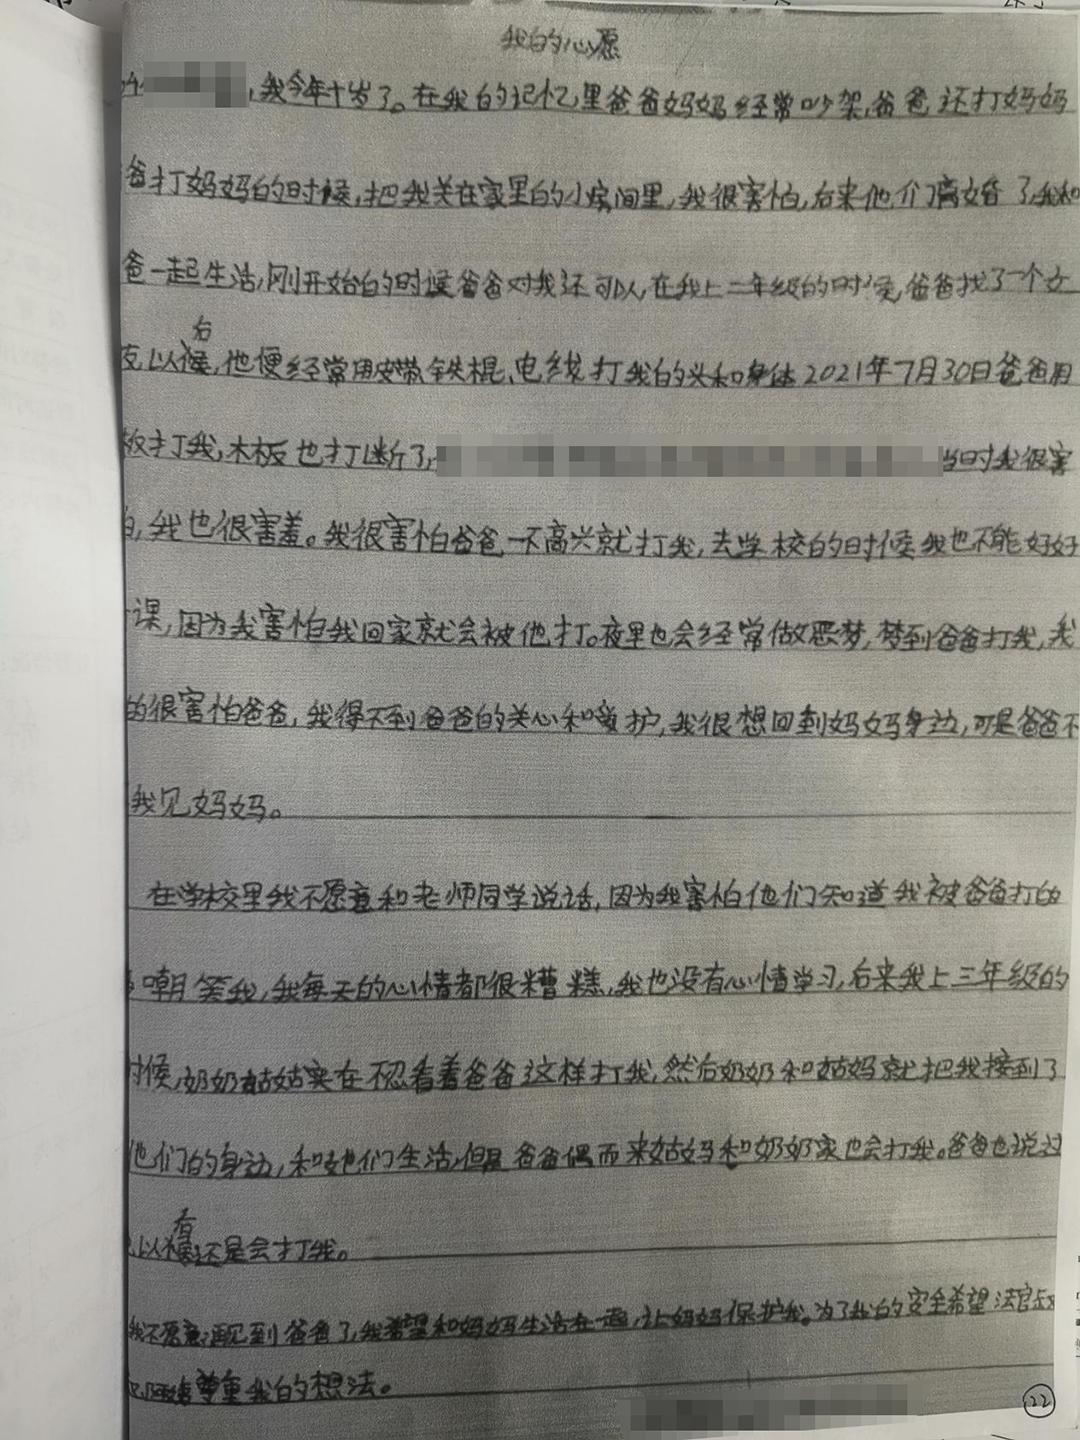 我的心愿
,我今年十岁了。在我的记忆里爸爸妈妈经常吵架,爸爸还打妈妈
爸打妈妈的时候,把我关在家里的小房间里,我很害怕,后来他们离婚了,我和
爸一起生活,刚开始的时候爸爸对我还可以,在我上二年级的时候,爸爸找了一个女
友以后,他便经常用皮带、铁棍、电线打我的头和身体2021年7月30日爸爸用
板打我,木板也打断了, 当时我很害
怕,我也很害羞。我很害怕爸爸一不高兴就打我,去学校的时候我也不能好好
课,因为我害怕我回家就会被他打。夜里也会经常做恶梦,梦到爸爸打我,我
的很害怕爸爸,我得不到爸爸的关心和爱护,我很想回到妈妈身边,可是爸爸不
我见妈妈。
在学校里我不愿意和老师同学说话,因为我害怕他们知道我被爸爸打的
嘲笑我,我每天的心情都很糟糕,我也没有心情学习,后来我上三年级的
时候,奶奶姑姑实在不忍看着爸爸这样打我,然后奶奶和姑妈就把我接到了
他们的身边,和他们生活,但是爸爸偶而来姑妈和奶奶家也会打我。爸爸也说过
以后还是会打我。
我不愿意再见到爸爸了,我希望和妈妈生活在一起,让妈妈保护我。为了我的安全希望法官叔
阿姨尊重我的想法。
22